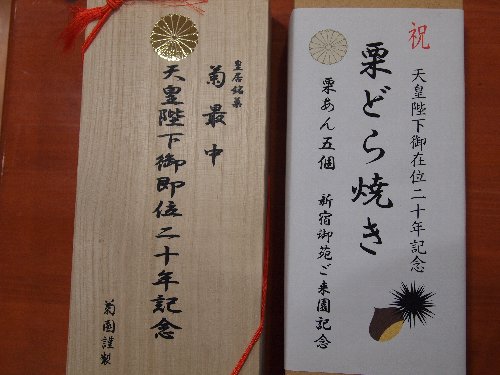 皇居銘菓
菊最中
天皇陛下御即位二十年記念
菊園謹製
祝
天皇陛下御在位二十年記念
栗どら焼き
栗あん五個 新宿御苑ご来園記念